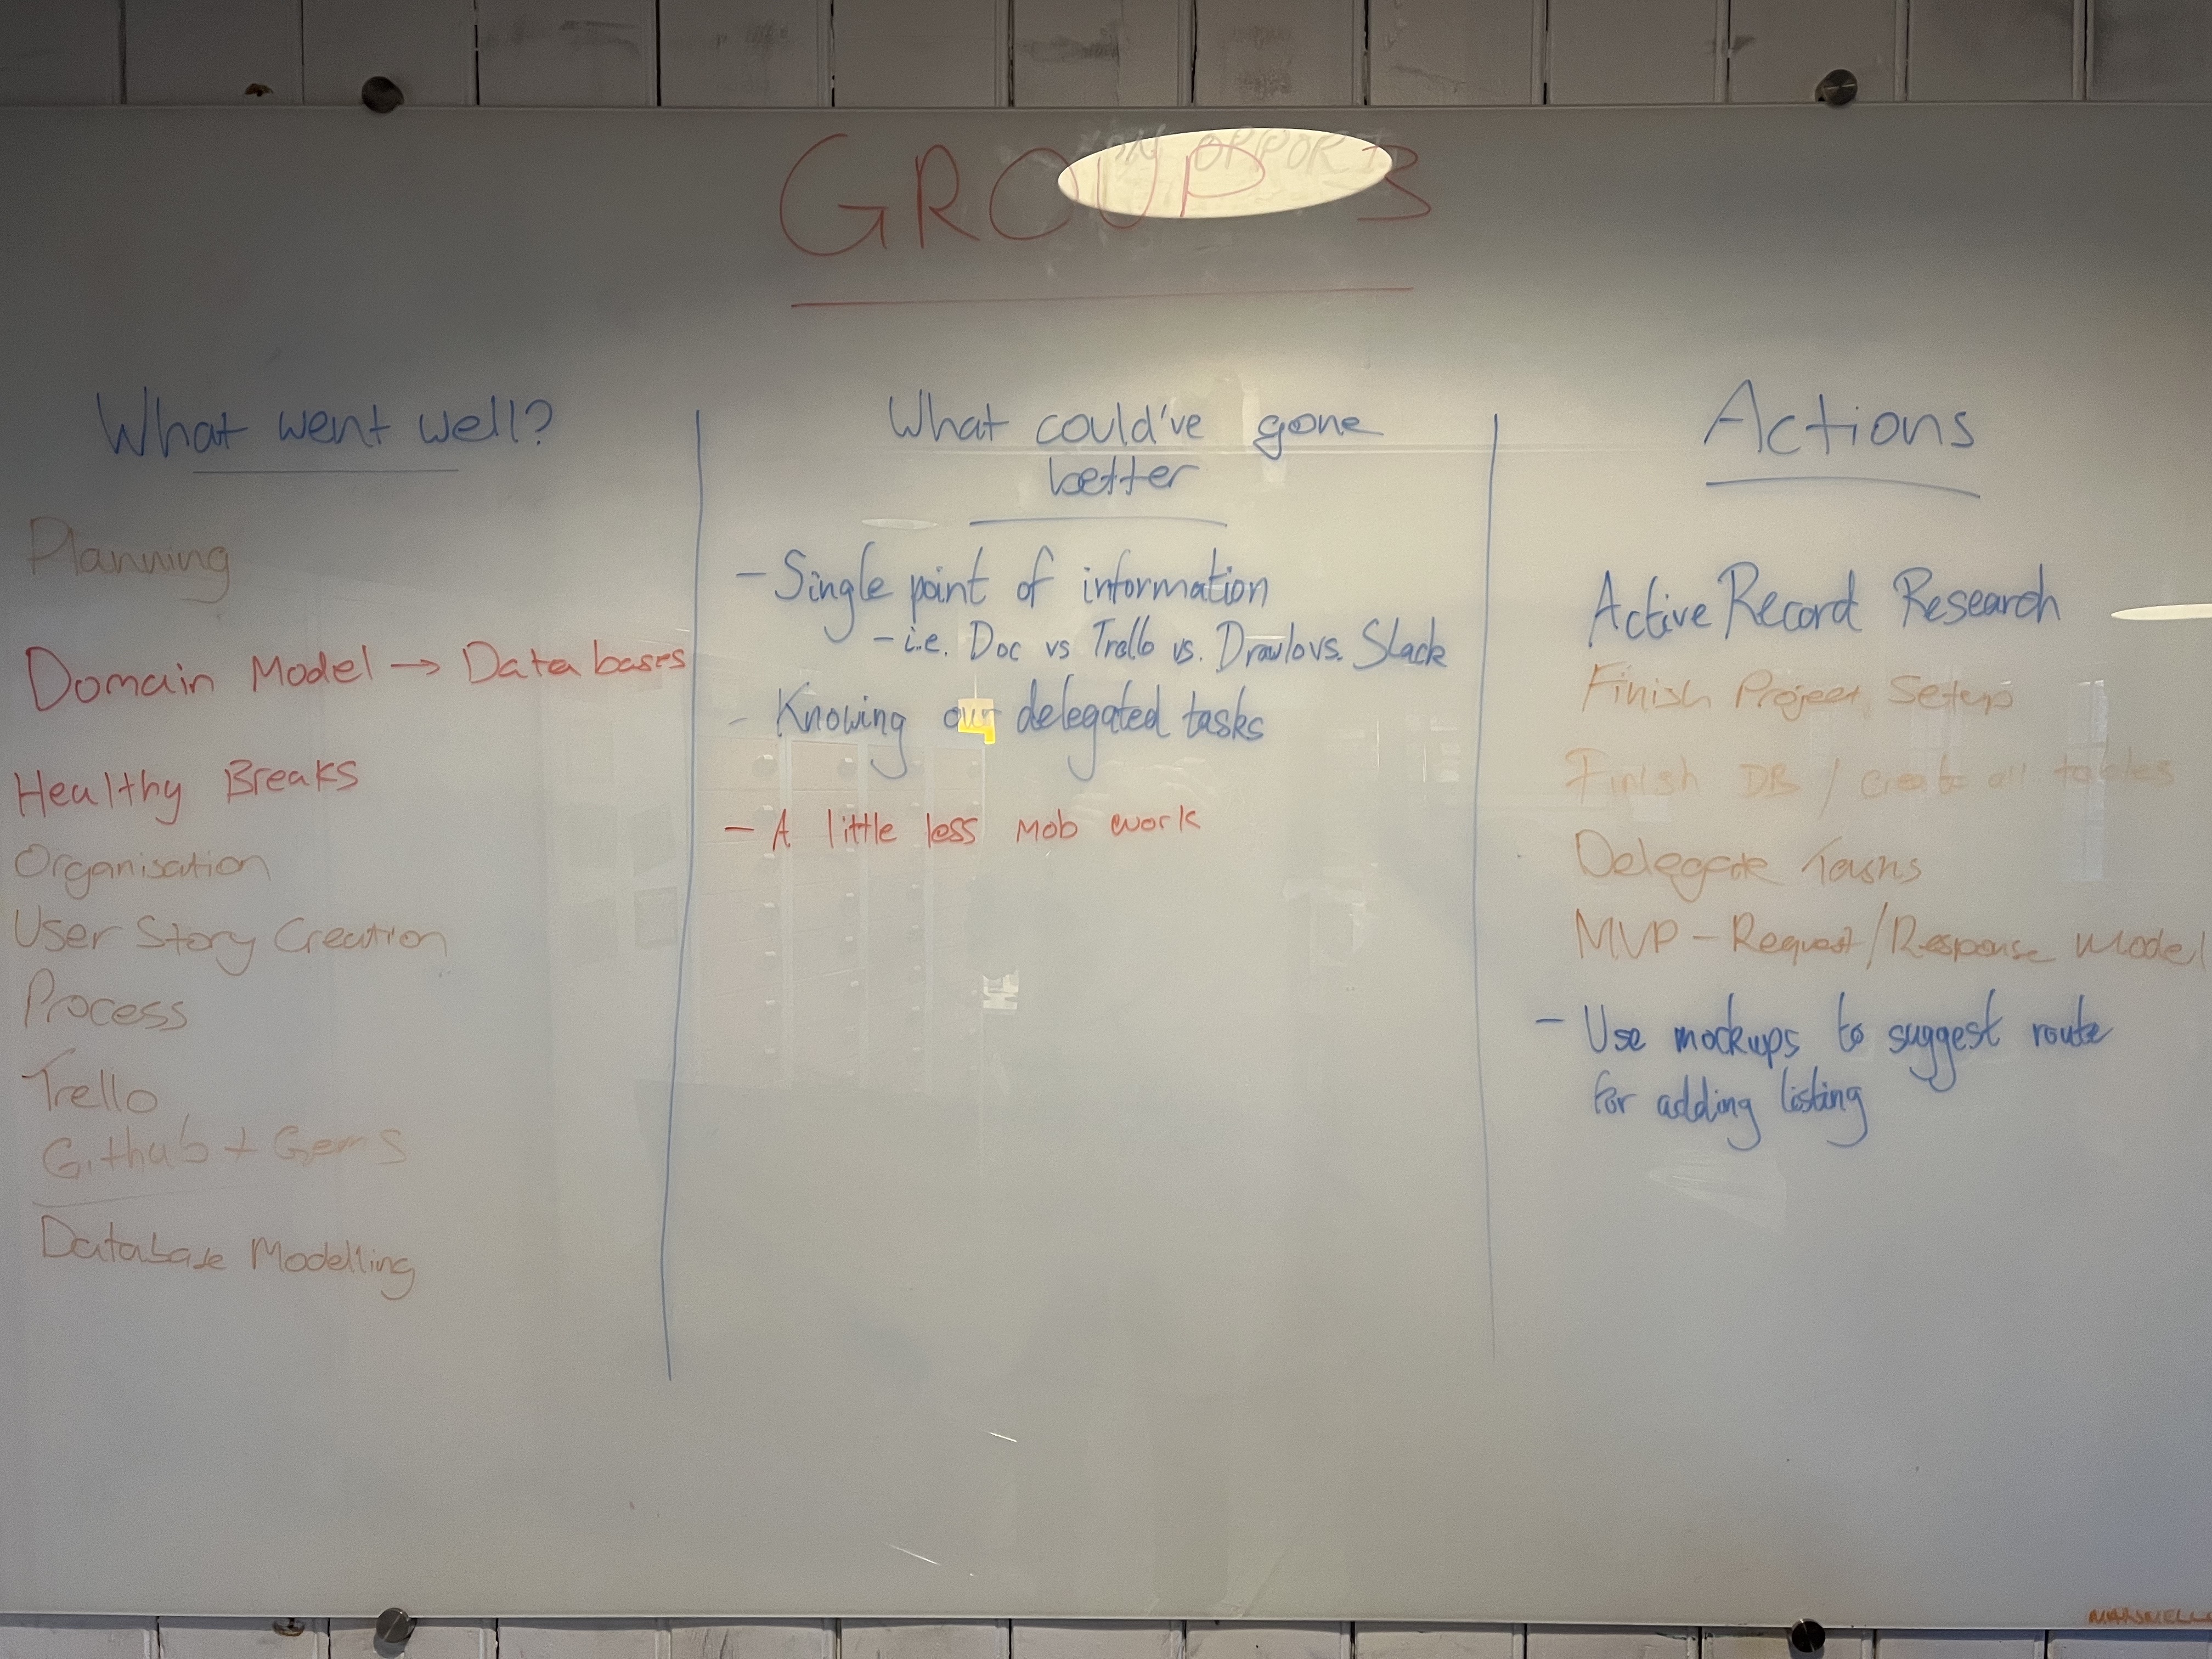 GROUP 3
What went well?
Planning
Domain Model → Databases
Healthy Breaks
Organisation
User Story Creation
Process
Trello
Github + Gems
Database Modelling
What could've gone
better
- Single point of information
- i.e. Doc vs Trello vs. Drawio vs. Slack
- Knowing our delegated tasks
- A little less mob work
Actions
Active Record Research
Finish Project Setup
Finish DB / Create all tables
Delegate Tasks
MVP - Request/Response Model
- Use mockups to suggest route
for adding listing